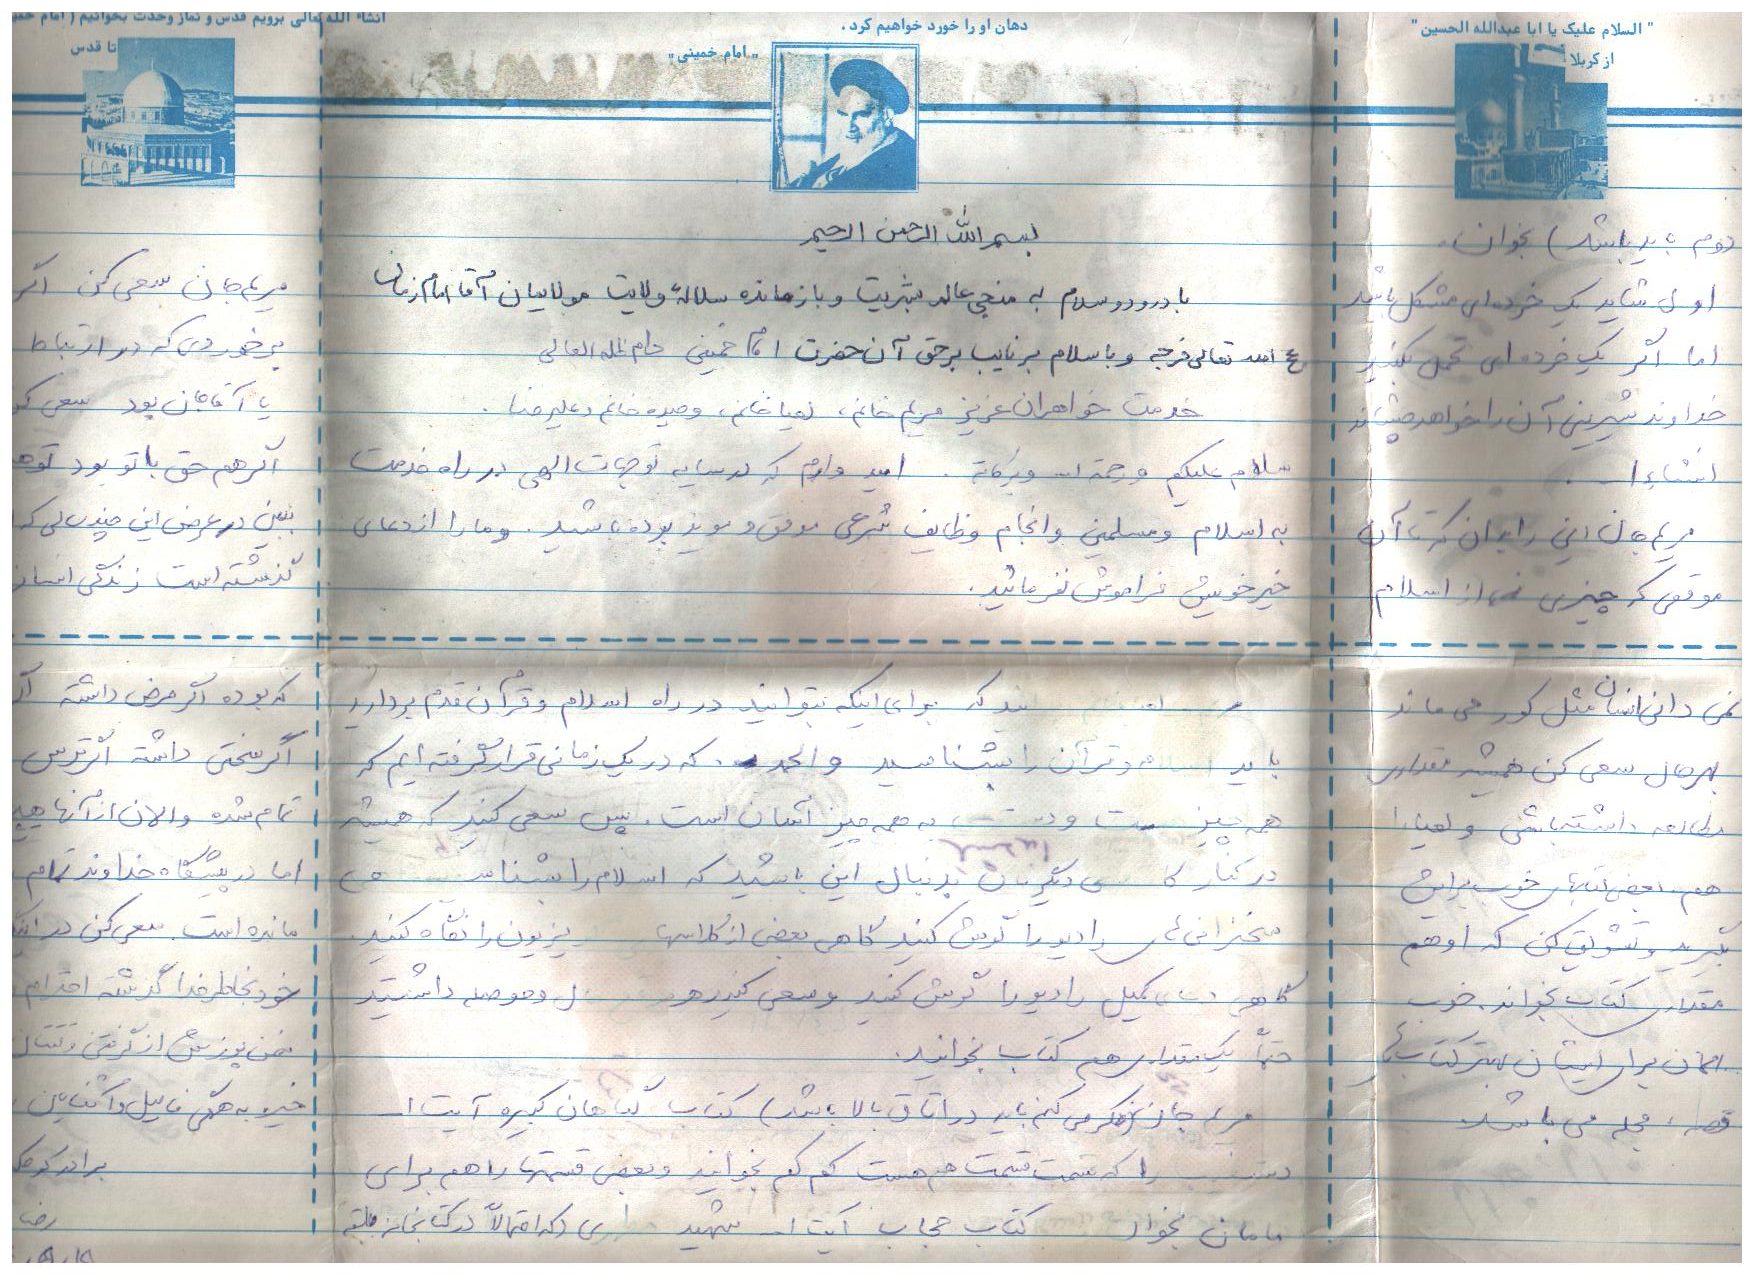 دهان او را خورد خواهیم کرد .
" امام خمینی "
بسم الله الرحمن الرحیم
با درود و سلام به منجی عالم بشریت و بازمانده سلالهٔ ولایت مولایمان آقا امام زمان
عج الله تعالی فرجه و با سلام بر نایب برحق آن حضرت امام خمینی دام ظله العالی
خدمت خواهران عزیز مریم خانم، وحیده خانم و علیرضا .
سلام علیکم و رحمة الله و برکاته . امید وارم که در سایه توجهات الهی در راه خدمت
به اسلام و مسلمین و انجام وظایف شرعی موفق و موید بوده باشید . و ما را از دعای
خیر خویش فراموش نفرمائید .
که برای اینکه بتوانید در راه اسلام و قرآن قدم بردارید
باید اسلام و قرآن را بشناسید و الحمد که در یک زمانی قرار گرفته ایم که
همه چیز به همه چیز آسان است . پس سعی کنید که همیشه
در کنار دیگرتان بدنبال این باشید که اسلام را
سخنرانی های رادیو را گوش کنید گاهی بعضی از کلاسها را نگاه کنید .
گاهی دعای کمیل رادیو را گوش کنید و سعی کنید حوصله داشتید
حتماً یک مقداری هم کتاب بخوانید .
مریم جان (فکر می کنم باید در اتاق بالا باشد) کتاب گناهان کبیره آیت ا...
را که قسمت قسمت هم هست کم کم بخوانید و بعضی قسمتها را هم برای
مامان بخوان کتاب حجاب آیت ا... شهید (که احتمالاً در کتابخانه
" السلام علیک یا ابا عبدالله الحسین "
از کربلا
دوم باید باشد) بخوان .
اولی شاید یک خرده ای مشکل باشد
اما اگر یک خرده ای تحمل بکنید
خداوند شیرینی آن را خواهد چشاند
انشاءا...
مریم جان این را بدان که تا آن
موقعی که چیزی از اسلام
نمی دانی انسان مثل کور می ماند
بهرحال سعی کن همیشه مقداری
مطالعه داشته باشی و
هم بعضی کتابهای خوب برایش
بگیرید و تشویق کن که او هم
مقداری کتاب بخواند . خوب
الان برای ایشان بهتر کتاب های
قصه ، مجله می باشد
انشاء الله تعالی برویم قدس و نماز وحدت بخوانیم ( امام
تا قدس
مریم جان سعی کن اگر
برخوردی که در ارتباط
با آقاجان بود سعی کن
اگر هم حق با تو بود تو
ببین در عرض این چند سالی که
گذشته است زندگی
که بوده اگر مرض داشته
اگر سختی داشته اگر ترس
تمام شده و الان از آنها
اما در پیشگاه خداوند تمام
مانده است . سعی کن در
خود بخاطر خدا گذشته احترام
ضمن پوزش از گرفتن وقتتان
به همگی فامیل و آشنایان
برادر کوچک
رضا